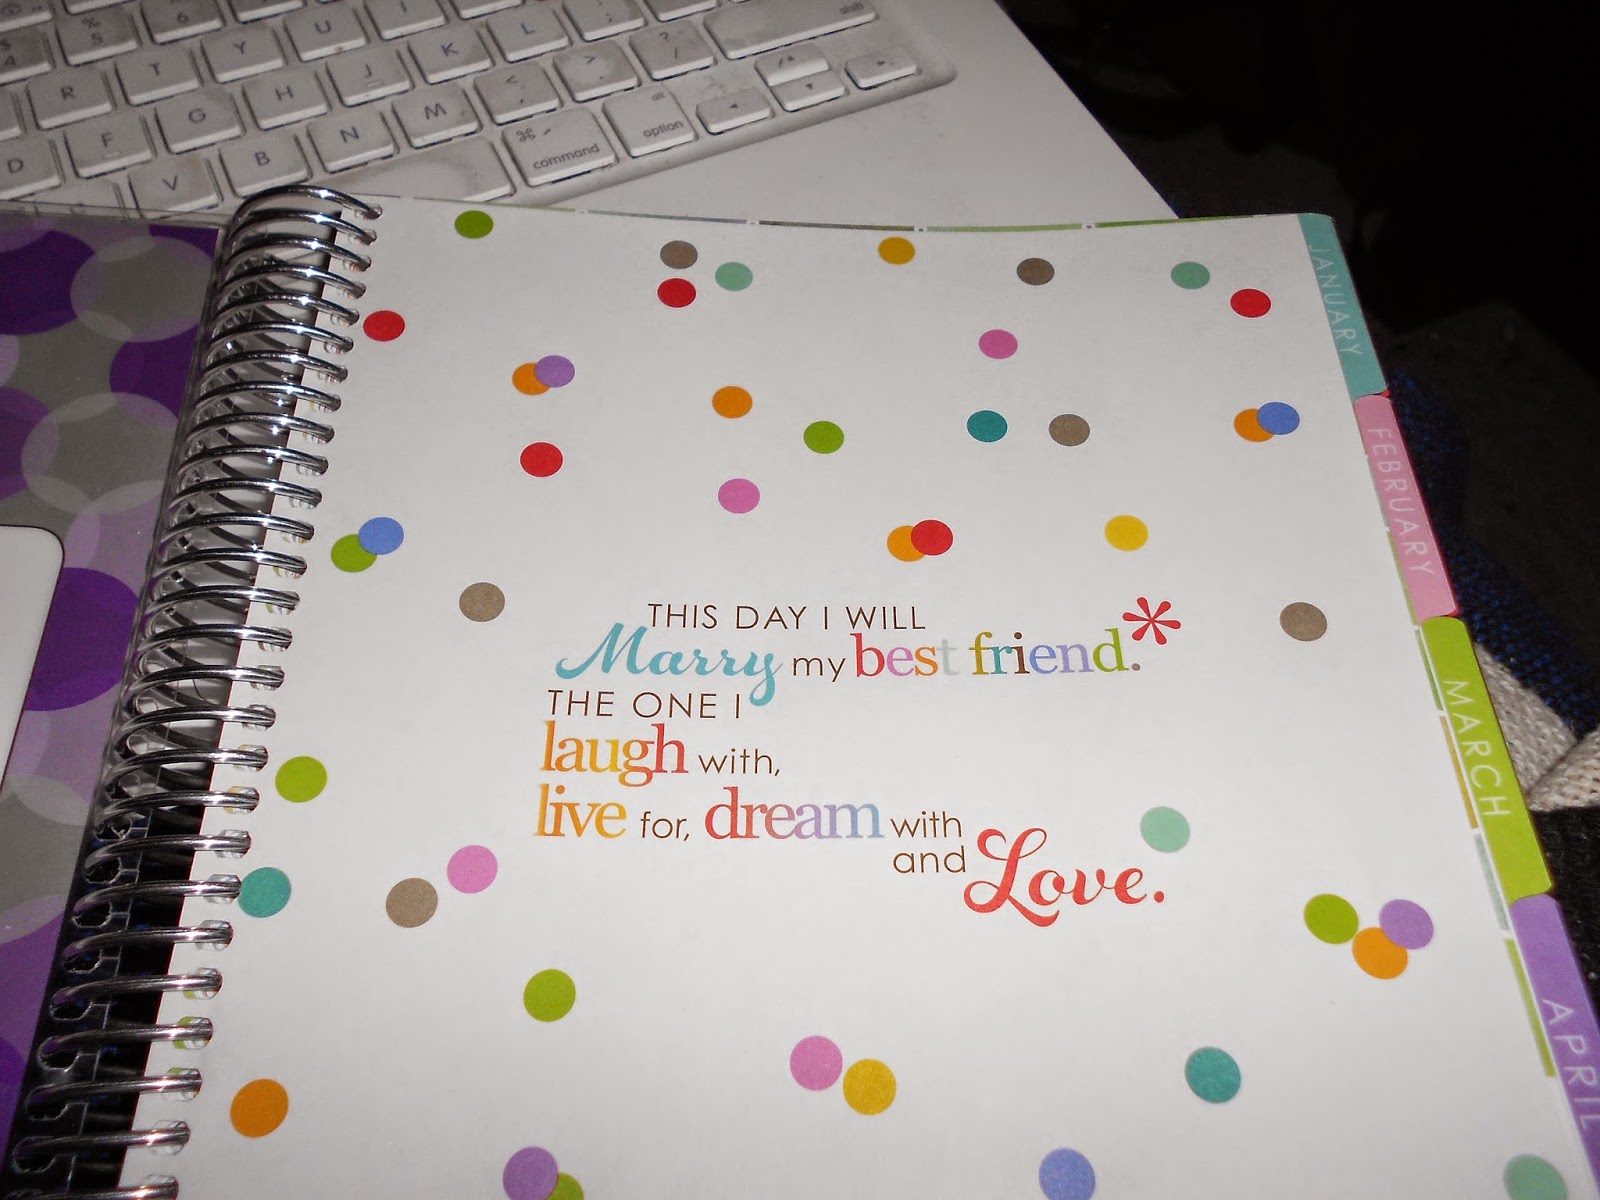 % 5
^ 6
$ 4
R T Y U I
: ;
shift
D F G H J K L
< ,
> .
? /
V B N M
⌘ command
alt option
THIS DAY I WILL
Marry my best friend.*
THE ONE I
laugh with,
live for, dream with
and Love.
JANUARY
FEBRUARY
MARCH
APRIL